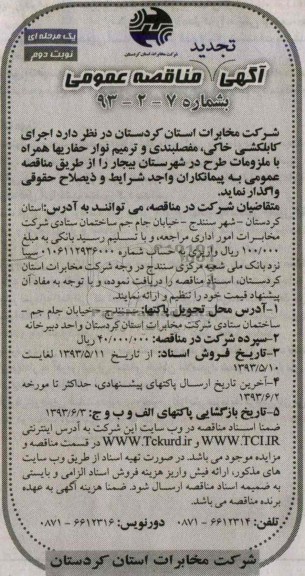 یک مرحله ای
نوبت دوم
شرکت مخابرات استان کردستان
تجدید
آگهی مناقصه عمومی
بشماره ۷ - ۲ - ۹۳
شرکت مخابرات استان کردستان در نظر دارد اجرای
کابلکشی خاکی، مفصلبندی و ترمیم نوار حفاریها همراه
با ملزومات طرح در شهرستان بیجار را از طریق مناقصه
عمومی به پیمانکاران واجد شرایط و ذیصلاح حقوقی
واگذار نماید.
متقاضیان شرکت در مناقصه، می توانند به آدرس: استان
کردستان - شهر سنندج - خیابان جام جم ساختمان ستادی شرکت
مخابرات امور اداری مراجعه، و با تسلیم رسید بانکی به مبلغ
۱۰۰/۰۰۰ ریال واریزی به حساب شماره ۰۱۰۶۱۱۲۹۳۶۰۰۰ سیبا
نزد بانک ملی شعبه مرکزی سنندج در وجه شرکت مخابرات استان
کردستان، اسناد مناقصه را دریافت نموده، و با توجه به مفاد آن
پیشنهاد قیمت خود را تنظیم و ارائه نمایند.
۱-آدرس محل تحویل پاکتها: سنندج - خیابان جام جم -
ساختمان ستادی شرکت مخابرات استان کردستان واحد دبیرخانه
۲-سپرده شرکت در مناقصه: ۴۰/۰۰۰/۰۰۰ ریال
۳-تاریخ فروش اسناد: از تاریخ ۱۳۹۳/۵/۱۱ لغایت
۱۳۹۳/۵/۱۰
۴-آخرین تاریخ ارسال پاکتهای پیشنهادی، حداکثر تا مورخه
۱۳۹۳/۶/۲
۵-تاریخ بازگشایی پاکتهای الف و ب و ج: ۱۳۹۳/۶/۳
ضمنا اسناد مناقصه در وب سایت این شرکت به آدرس اینترنتی
WWW.TCI.IR و WWW.Tckurd.ir در قسمت مناقصه و
مزایده موجود می باشد. در صورت تهیه اسناد از طریق وب سایت
های مذکور، ارائه فیش واریز هزینه فروش اسناد الزامی و بایستی
به ضمیمه اسناد مناقصه ارسال شود. ضمنا هزینه آگهی به عهده
برنده مناقصه می باشد.
تلفن: ۶۶۱۲۳۱۴ - ۰۸۷۱ دورنویس: ۶۶۱۲۳۱۶ - ۰۸۷۱
شرکت مخابرات استان کردستان